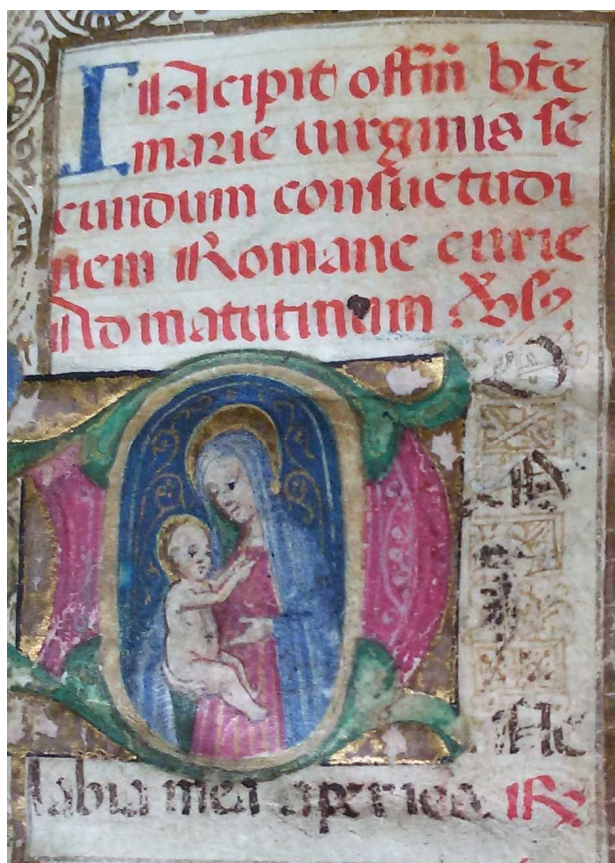 Incipit offiñ bt̄e
marie uirginis se
cundum consuetudi
nem Romane curie
Ad matutinum
D
ne
labia mea aperies. ℟